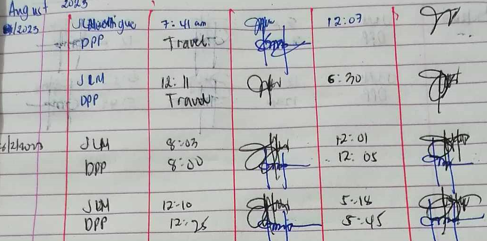 August 2023
/2023 JLM 7:41 am 12:07
DPP Travel
JLM 12:11 6:30
DPP Travel
JLM 8:03 12:01
DPP 8:00 12:05
JLM 12:10 5:18
DPP 12:26 5:45